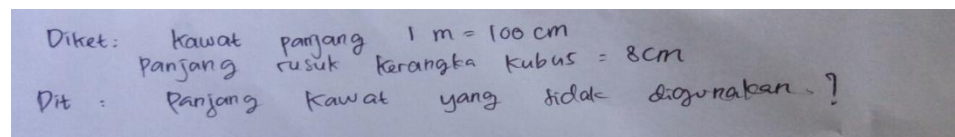 Diket: Kawat panjang 1 m = 100 cm
Panjang rusuk kerangka kubus = 8cm
Dit : Panjang Kawat yang tidak digunakan. ?